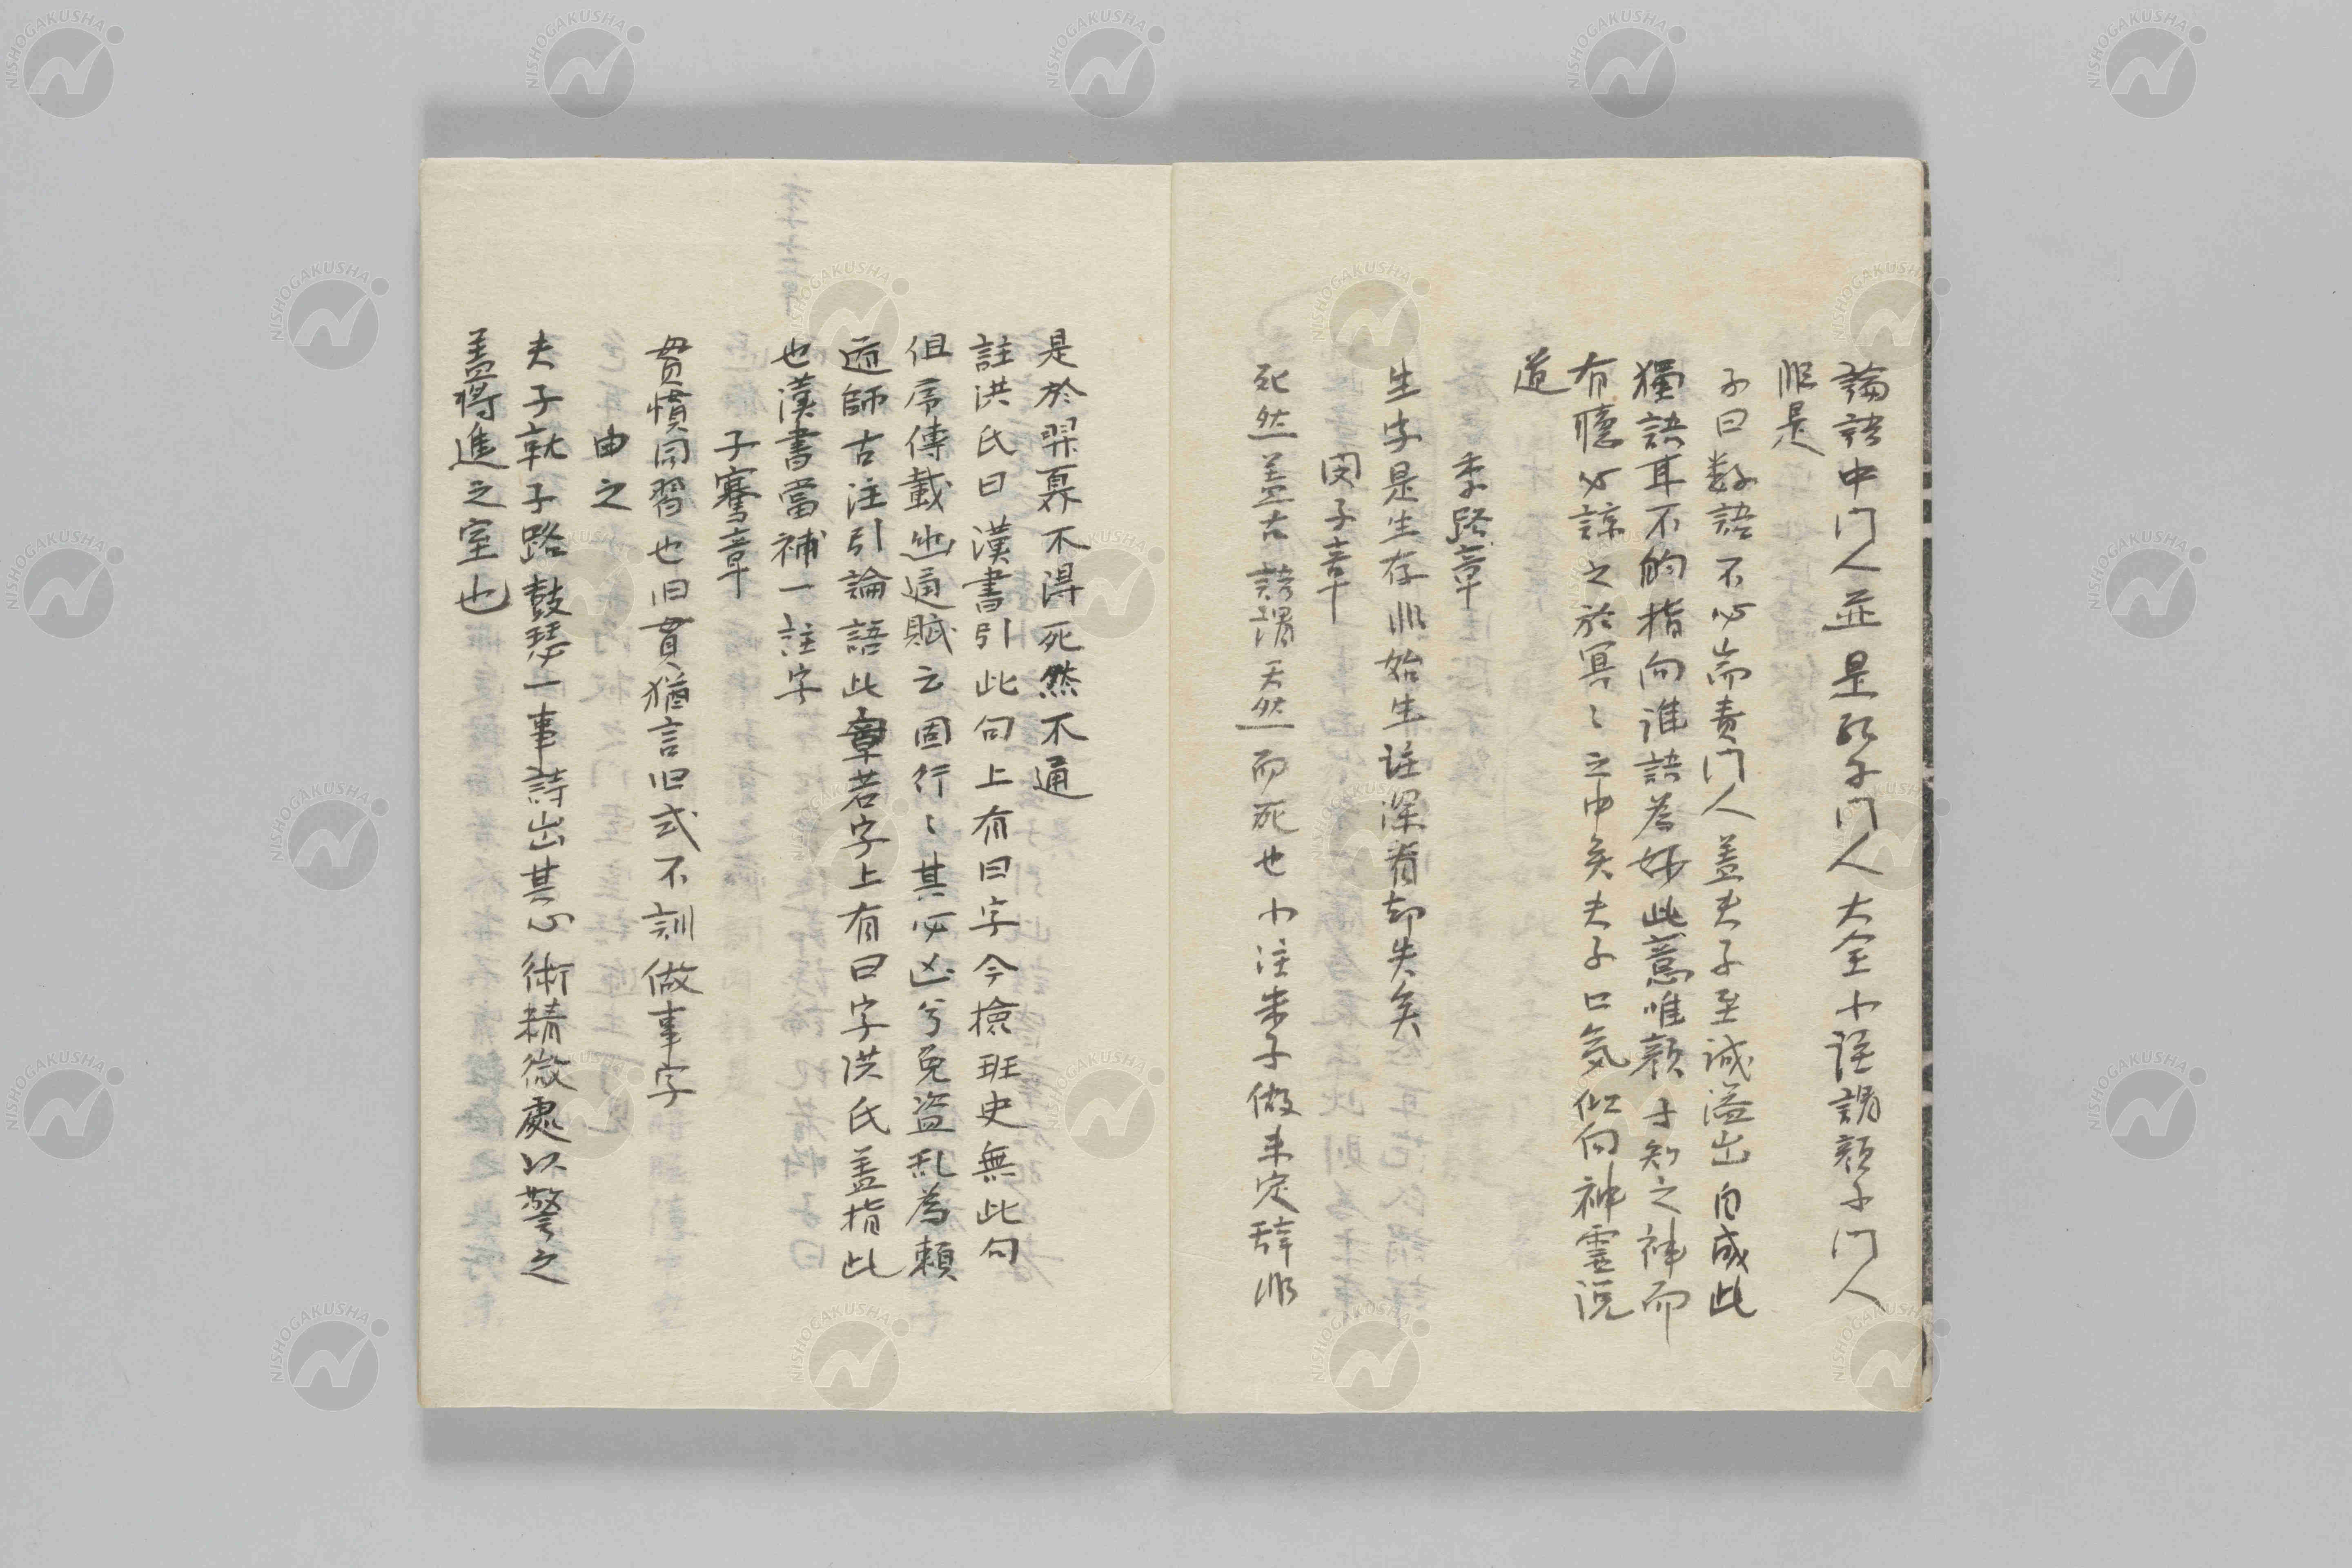 論語中门人並是孔子门人大全小註謂顔子门人
非是
子曰数語不必耑責门人蓋夫子至誠溢出自成此
獨語耳不的指向誰語為妙此意唯顔子知之神而
有聽必諒之於冥〻之中矣夫子口気似向神霊説
道
季路章
生字是生存非始生生註深看却失矣
閔子章
死然蓋古語謂天然而死也小注朱子做未定辞非
是於羿奡不得死然不通
註洪氏曰漢書引此句上有曰字今檢班史無此句
但序傳載幽通賦云固行〻其必凶兮免盗乱為頼
道師古注引論語此章若字上有曰字洪氏蓋指此
也漢書當補一註字
子騫章
貫慣同習也旧貫猶言旧式不訓做事字
由之
夫子就子路鼓瑟一事詩出其心術精微處以警之
蓋將進之室也
NISHOGAKUSHA